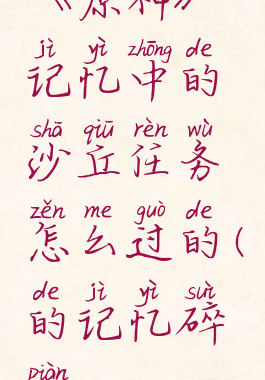 《原神》
jì yì zhōng de
记忆中的
shā qiū rèn wù
沙丘任务
zěn me guò de
怎么过的(
de jì yì suì
的记忆碎
piàn